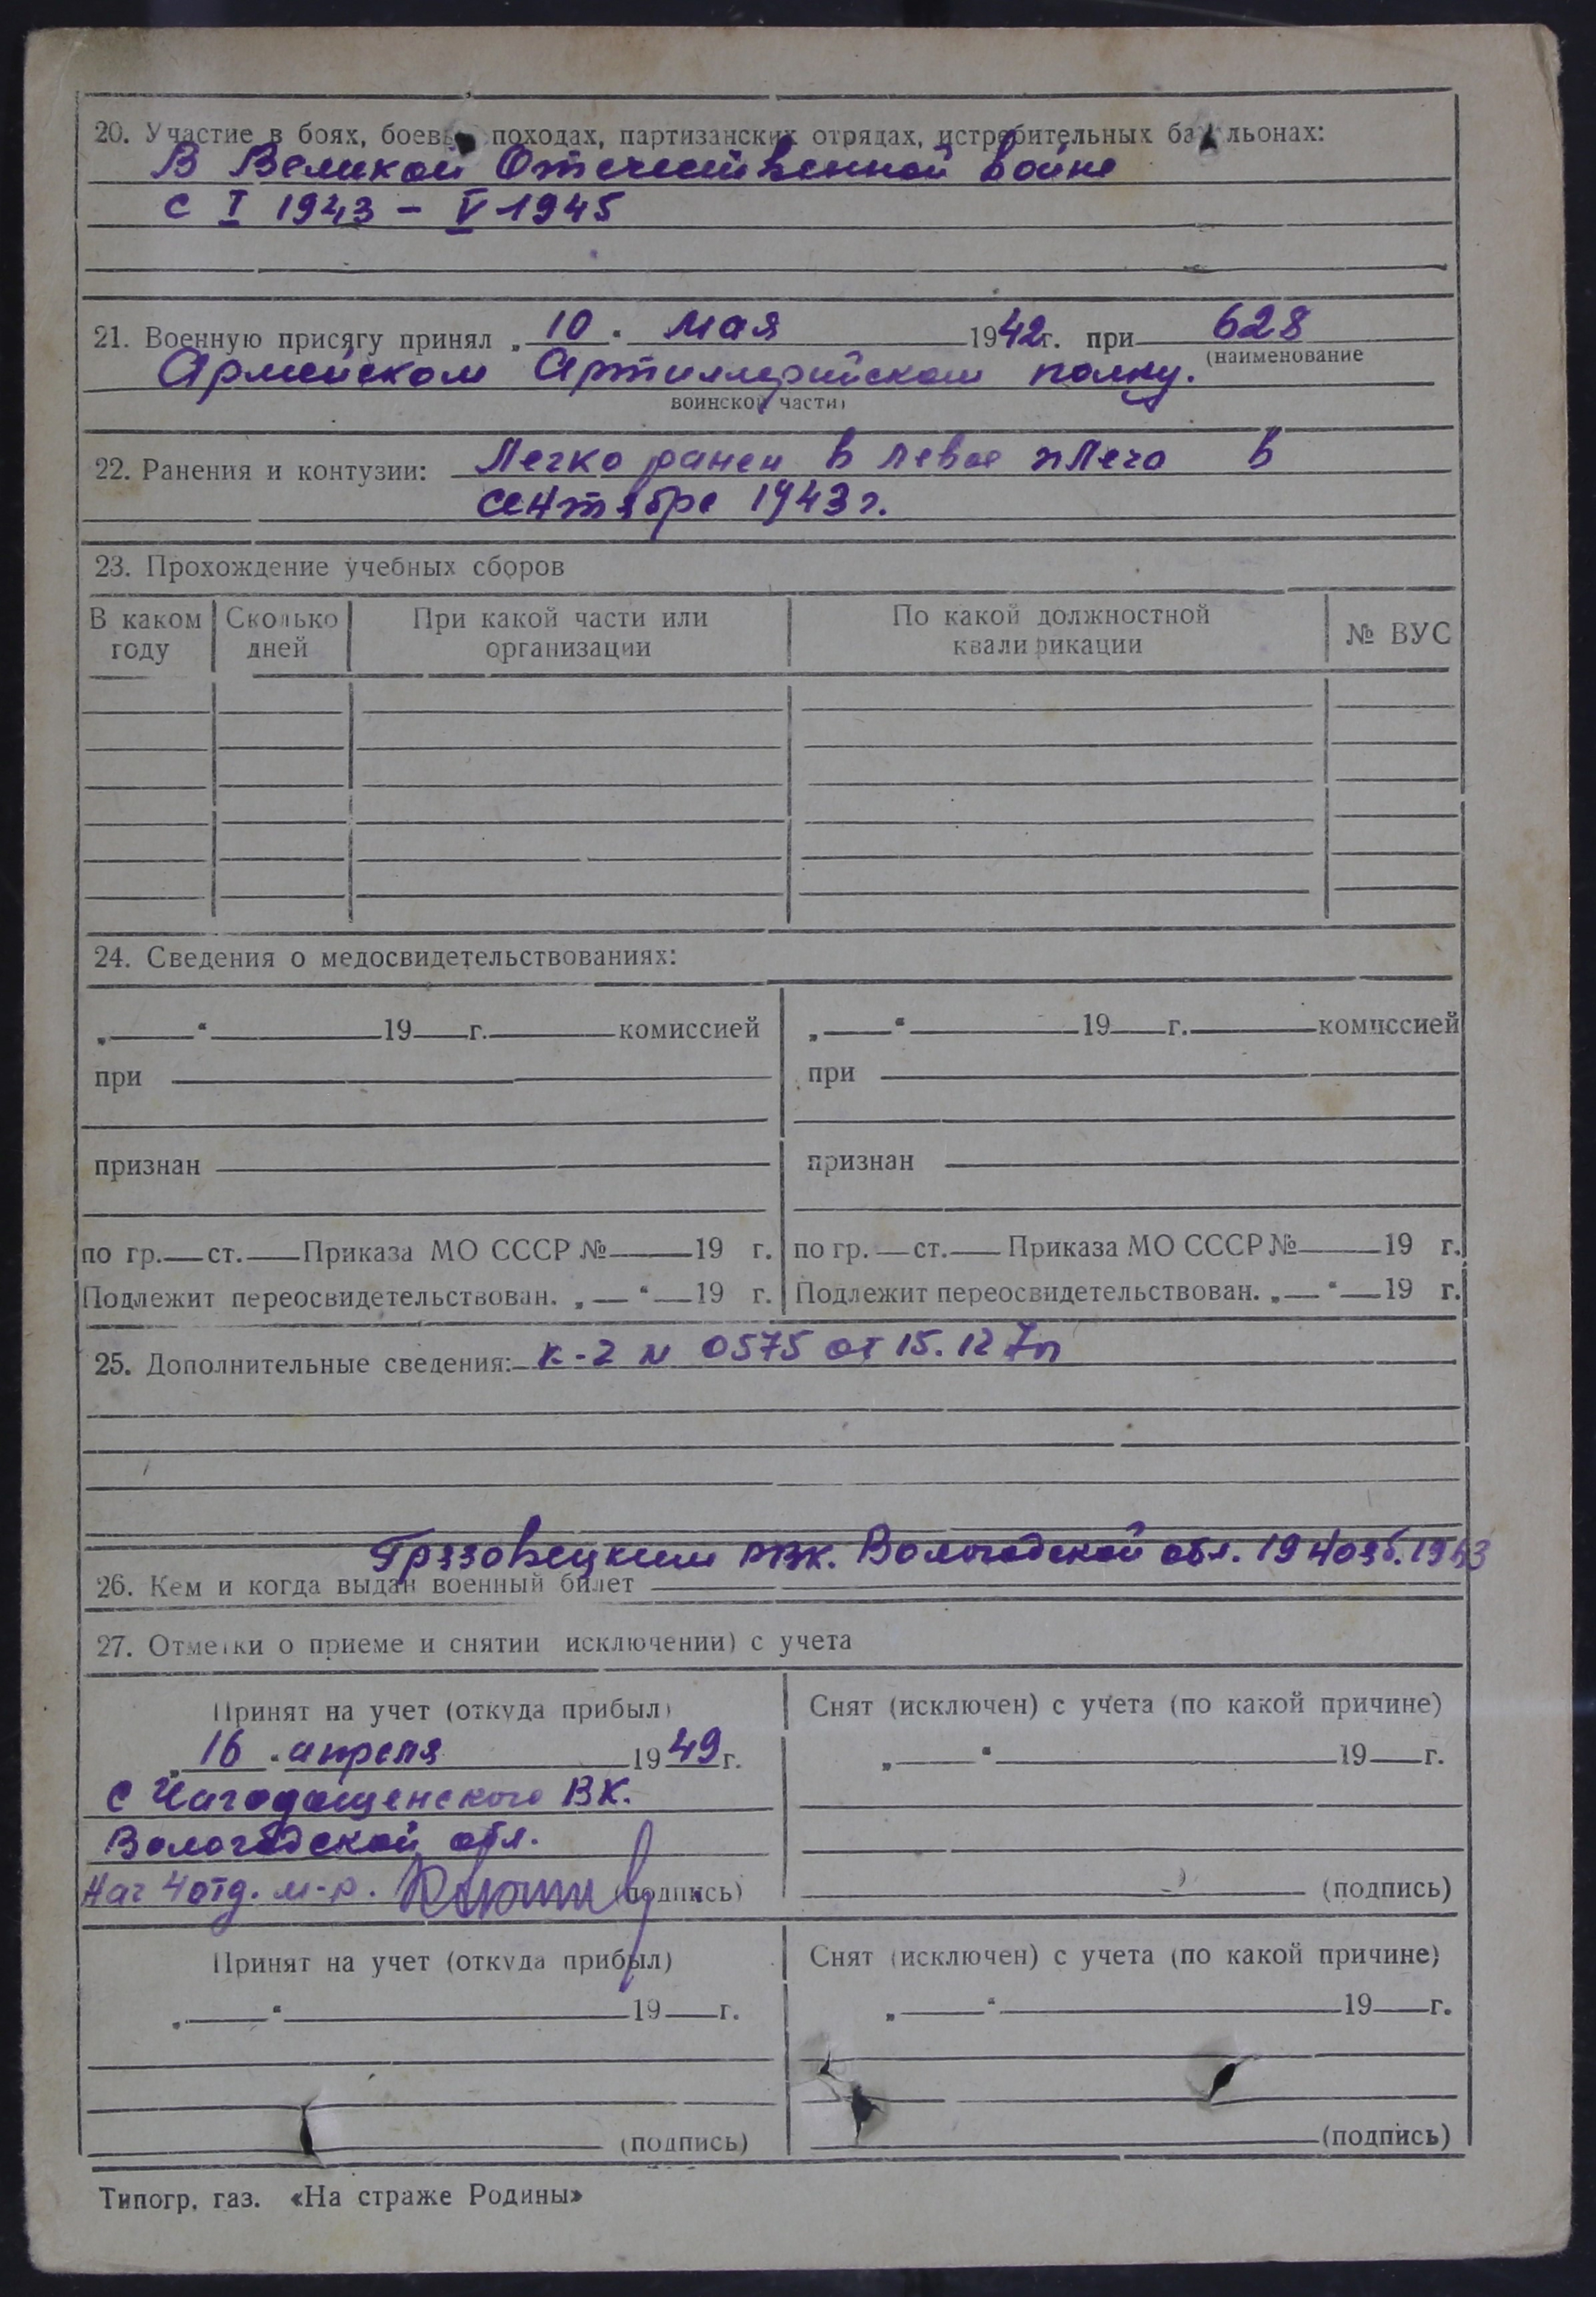 20. Участие в боях, боевых походах, партизанских отрядах, истребительных батальонах:
В Великой Отечественной войне
с I 1943 – V 1945
21. Военную присягу принял „ 10 “ мая 1942г. при 628
(наименование
Армейском Артиллерийском полку.
воинской части)
22. Ранения и контузии: Легко ранен в левое плечо в
сентябре 1943 г.
23. Прохождение учебных сборов
В каком году Сколько дней При какой части или организации По какой должностной квалификации № ВУС
24. Сведения о медосвидетельствованиях:
„ “ 19 г. комиссией „ “ 19 г. комиссией
при при
признан признан
по гр. ст. Приказа МО СССР № 19 г. по гр. ст. Приказа МО СССР № 19 г.
Подлежит переосвидетельствован. „ “ 19 г. Подлежит переосвидетельствован. „ “ 19 г.
25. Дополнительные сведения: К-2 № 0575 от 15.12
Грязовецким РВК. Вологодской обл. 19
26. Кем и когда выдан военный билет
27. Отметки о приеме и снятии исключении) с учета
Принят на учет (откуда прибыл) Снят (исключен) с учета (по какой причине)
„ 16 “ апреля 1949 г. „ “ 19 г.
с Чагодощенского ВК.
Вологодской обл.
Нач 4 отд. м-р. (подпись) (подпись)
Принят на учет (откуда прибыл) Снят (исключен) с учета (по какой причине)
„ “ 19 г. „ “ 19 г.
(подпись) (подпись)
Типогр. газ. «На страже Родины»